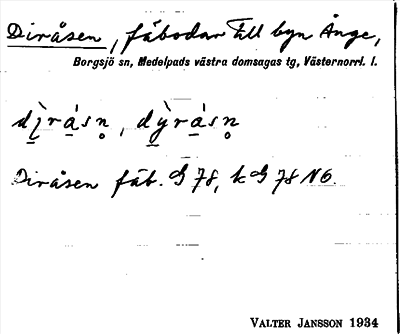 Diråsen, fäbodar till byn Ånge,
Borgsjö sn, Medelpads västra domsagas tg, Västernorrl. l.
dı̣̀rá̱sn̥, dỳ̱rá̱sn̥
Diråsen fäb. G 78, k G 78 NÖ.
VALTER JANSSON 1934